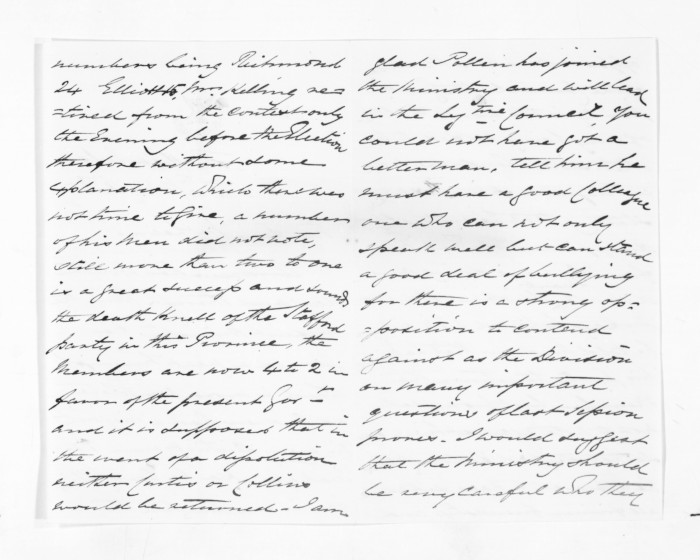 numbers being Richmond
24 Elliott 15, Mr. Kelling re=
=tired from the contest only
the Evening before the Election
therefore without some
explanation, which there was
not time to give, a number
of his men did not vote,
still more than two to one
is a great success and sounds
the death Knell of the Stafford
party in this Province, the
Members are now 4 to 2 in
favor of the present Govt
and it is supposed that in
the event of a dissolution
neither Curtis or Collins
would be returned - I am
glad Pollen has joined
the Ministry and will lead
in the Legtive Council, You
could not have got a
better man, tell him he
must have a good Colleague
one who can not only
speak well but can stand
a good deal of bullying
for there is a strong op=
=position to contend
against as the Division
on many important
questions of last Session
proves - I would suggest
that the Ministry should
be very careful who they